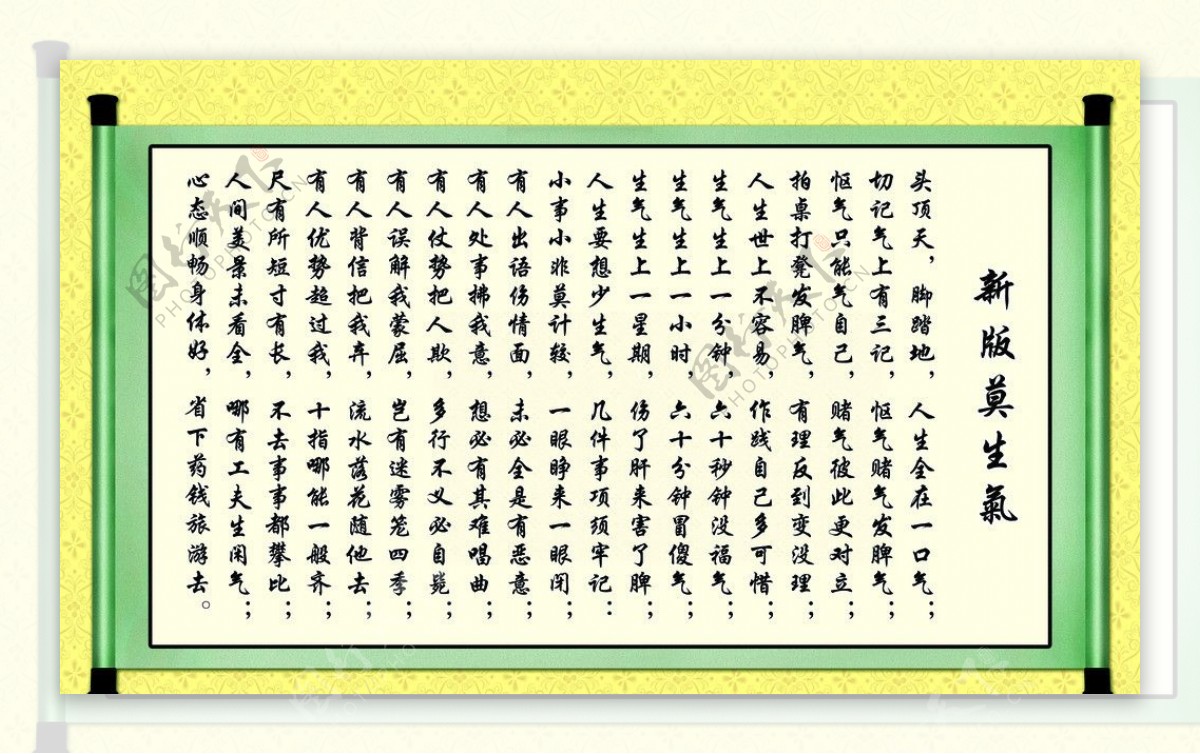 新版莫生氣
头顶天，脚踏地，人生全在一口气；
切记气上有三记，怄气赌气发脾气；
怄气只能气自己，赌气彼此更对立；
拍桌打凳发脾气，有理反到变没理；
人生世上不容易，作践自己多可惜；
生气生上一分钟，六十秒钟没福气；
生气生上一小时，六十分钟冒傻气；
生气生上一星期，伤了肝来害了脾；
人生要想少生气，几件事项须牢记：
小事小非莫计较，一眼睁来一眼闭；
有人出语伤情面，未必全是有恶意；
有人处事拂我意，想必有其难唱曲；
有人仗势把人欺，多行不义必自毙；
有人误解我蒙屈，岂有迷雾笼四季；
有人背信把我弃，流水落花随他去；
有人优势超过我，十指哪能一般齐；
尺有所短寸有长，不去事事都攀比；
人间美景未看全，哪有工夫生闲气；
心态顺畅身体好，省下药钱旅游去。
图行天下 PHOTOPHOTO.CN
图行天下 PHOTOPHOTO.CN